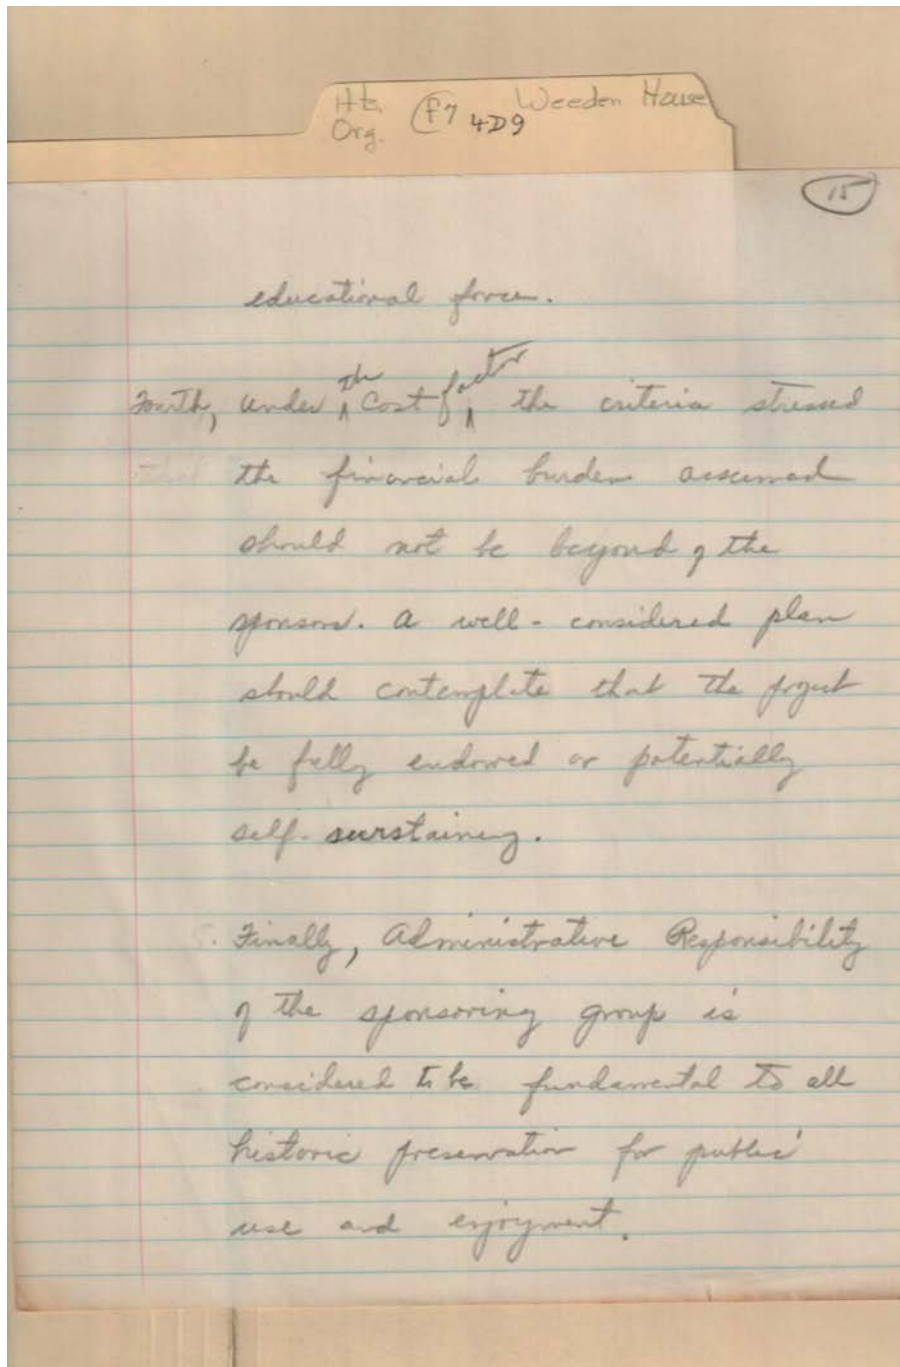 Hts. Weeden House
Org. F7 4D9
15
educational force.
the factor
Fourth, under ^ Cost ^ the criteria stressed
the financial burden assumed
should not be beyond of the
sponsors. A well-considered plan
should contemplate that the project
be fully endowed or potentially
self-surstaining.
5. Finally, Administrative Responsibility
of the sponsoring group is
considered to be fundamental to all
historic preservation for public
use and enjoyment.